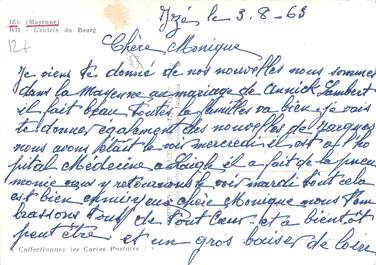 Izé le 3.8-63
IZÉ (Mayenne)
L'entrée du Bourg
12f
Chère Monique
Je viens te donné de nos nouvelles nous sommes
dans la Mayenne au mariage de Annick Lambert
il fait beau toutes la familles va bien je vais
te donner egalement des nouvelles de Jacques
nous avons était le voir mercredi il est a l ho
pital Médecine a il a fait de la pneu
monie nous y retournons le voir mardi tout cela
est bien ennuyeux chère Monique nous t'em
brassons tous de tout Cœur et a bientôt
peut être et un gros baiser de loin
Collectionnez les Cartes Postales